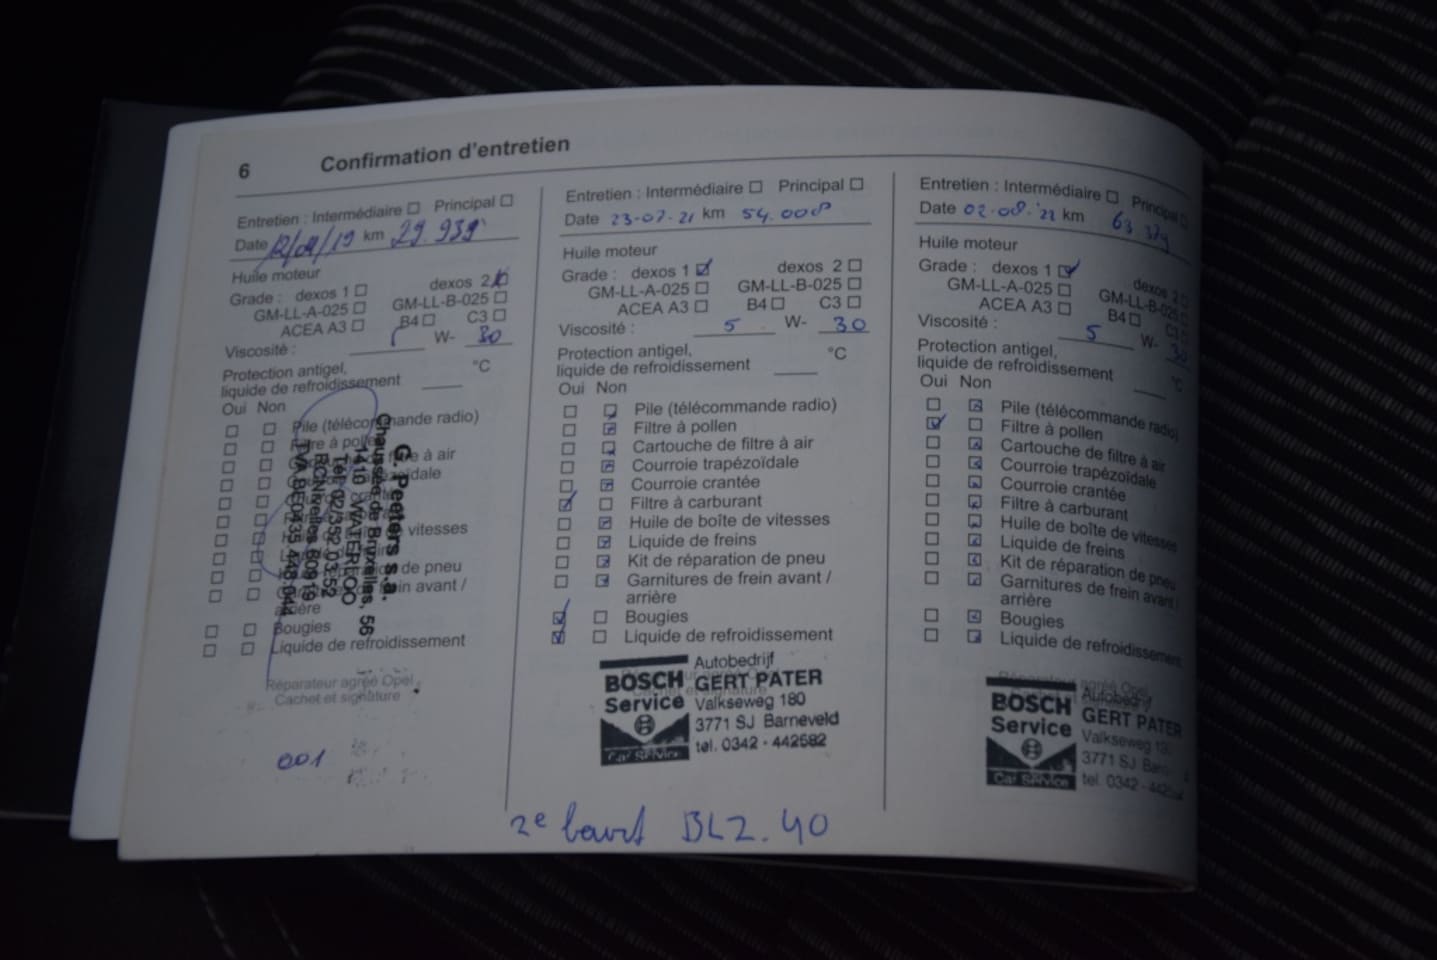 6 Confirmation d'entretien
Entretien : Intermédiaire ☐ Principal ☐
Date 12/04/19 km 29.939
Huile moteur
Grade : dexos 1 ☐ dexos 2 ☑
GM-LL-A-025 ☐ GM-LL-B-025 ☐
ACEA A3 ☐ B4 ☐ C3 ☐
Viscosité : W- 30
Protection antigel,
liquide de refroidissement °C
Oui Non
☐ ☐ Pile (télécommande radio)
☐ ☐ Filtre à pollen
☐ ☐ filtre à air
☐ ☐
☐ ☐
☐ ☐
☐ ☐ vitesses
☐ ☐
☐ ☐ de pneu
☐ ☐ de frein avant /
arrière
☐ ☐ Bougies
☐ ☐ Liquide de refroidissement
G. Peeters s.a.
Chaussée de Bruxelles, 56
1410 WATERLOO
Tél. 02/332.03.52
Réparateur agréé Opel
Cachet et signature
001
Entretien : Intermédiaire ☐ Principal ☐
Date 23-07-21 km 54.008
Huile moteur
Grade : dexos 1 ☑ dexos 2 ☐
GM-LL-A-025 ☐ GM-LL-B-025 ☐
ACEA A3 ☐ B4 ☐ C3 ☐
Viscosité : 5 W- 30
Protection antigel,
liquide de refroidissement °C
Oui Non
☐ ☑ Pile (télécommande radio)
☐ ☑ Filtre à pollen
☐ ☑ Cartouche de filtre à air
☐ ☑ Courroie trapézoïdale
☐ ☑ Courroie crantée
☑ ☐ Filtre à carburant
☐ ☑ Huile de boîte de vitesses
☐ ☑ Liquide de freins
☐ ☑ Kit de réparation de pneu
☐ ☑ Garnitures de frein avant /
arrière
☑ ☐ Bougies
☑ ☐ Liquide de refroidissement
BOSCH
Service
Car Service
Autobedrijf
GERT PATER
Valkseweg 180
3771 SJ Barneveld
tel. 0342 - 442582
2e BLZ. 40
Entretien : Intermédiaire ☐ Principal ☐
Date 02-08-'22 km 63
Huile moteur
Grade : dexos 1 ☑ dexos 2 ☐
GM-LL-A-025 ☐ GM-LL-B-025 ☐
ACEA A3 ☐ B4 ☐ C3 ☐
Viscosité : 5 W- 30
Protection antigel,
liquide de refroidissement °C
Oui Non
☐ ☑ Pile (télécommande radio)
☑ ☐ Filtre à pollen
☐ ☑ Cartouche de filtre à air
☐ ☑ Courroie trapézoïdale
☐ ☑ Courroie crantée
☐ ☑ Filtre à carburant
☐ ☑ Huile de boîte de vitesses
☐ ☑ Liquide de freins
☐ ☑ Kit de réparation de pneu
☐ ☑ Garnitures de frein avant /
arrière
☐ ☑ Bougies
☐ ☑ Liquide de refroidissement
BOSCH
Service
Car Service
Autobedrijf
GERT PATER
Valkseweg
3771 SJ
tel. 0342